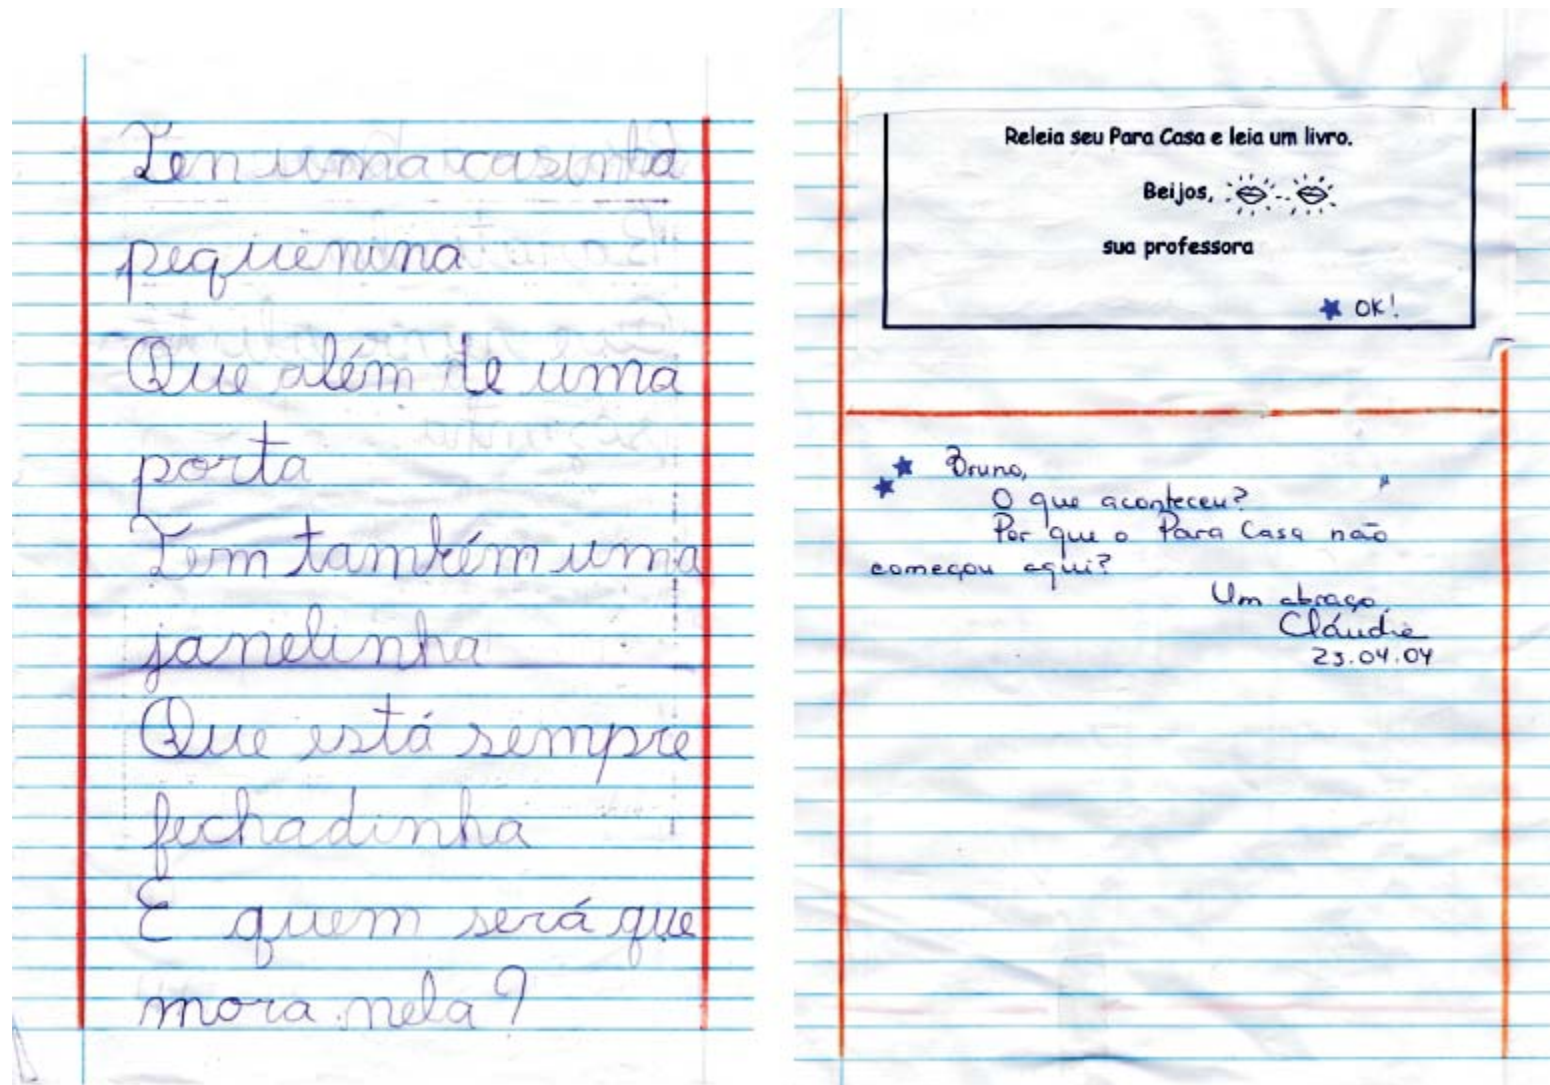 Tem uma casinha
pequenina
Que além de uma
porta
Tem também uma
janelinha
Que está sempre
fechadinha
E quem será que
mora nela?
Releia seu Para Casa e leia um livro.
Beijos,
sua professora
OK!
Bruno,
O que aconteceu?
Por que o Para Casa não
começou aqui?
Um abraço,
Cláudia
23.04.04